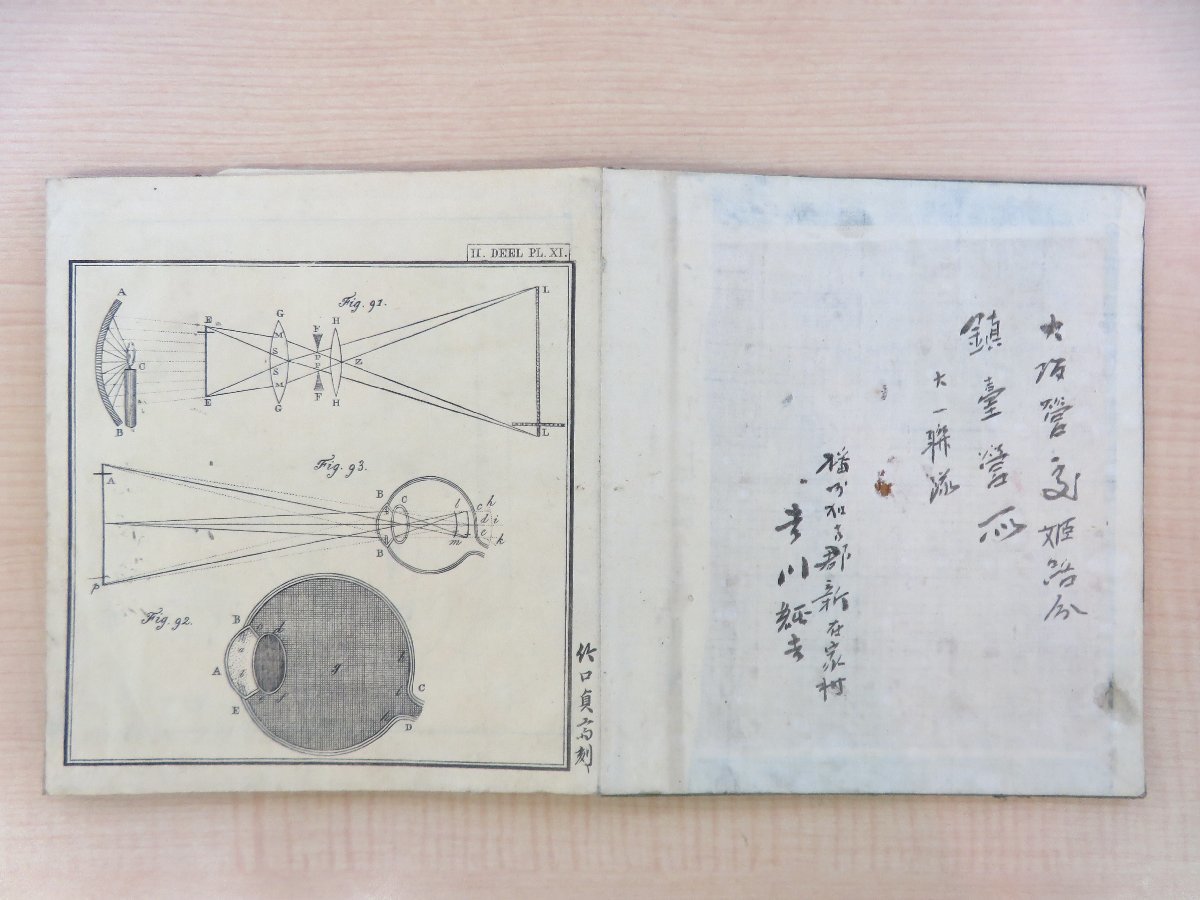 II. DEEL PL. XI.
Fig. 91.
A
B
C
E
E
G
M
S
S
M
G
F
D
F
H
H
Z
L
L
Fig. 93.
A
P
B
B
C
l
m
c
h
d
i
e
k
Fig. 92.
B
A
E
g
C
D
竹口貞斎刻
大阪管内姫路分
鎮臺營所
大一聯隊
播州加古郡新在家村
吉川